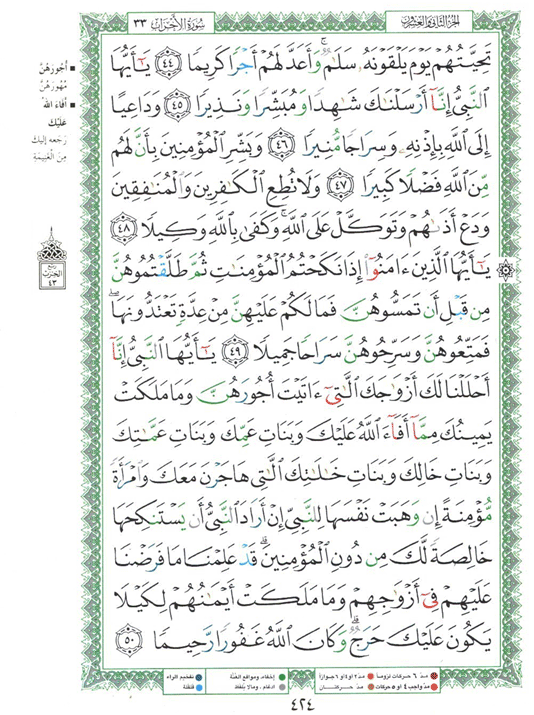 الجزء الثاني والعشرون
سُورَةُ الأَحْزَابِ ٣٣
تَحِيَّتُهُمْ يَوْمَ يَلْقَوْنَهُۥ سَلَٰمٌ ۚ وَأَعَدَّ لَهُمْ أَجْرًا كَرِيمًا ٤٤ يَٰٓأَيُّهَا
ٱلنَّبِىُّ إِنَّآ أَرْسَلْنَٰكَ شَٰهِدًا وَمُبَشِّرًا وَنَذِيرًا ٤٥ وَدَاعِيًا
إِلَى ٱللَّهِ بِإِذْنِهِۦ وَسِرَاجًا مُّنِيرًا ٤٦ وَبَشِّرِ ٱلْمُؤْمِنِينَ بِأَنَّ لَهُم
مِّنَ ٱللَّهِ فَضْلًا كَبِيرًا ٤٧ وَلَا تُطِعِ ٱلْكَٰفِرِينَ وَٱلْمُنَٰفِقِينَ
وَدَعْ أَذَىٰهُمْ وَتَوَكَّلْ عَلَى ٱللَّهِ ۚ وَكَفَىٰ بِٱللَّهِ وَكِيلًا ٤٨
يَٰٓأَيُّهَا ٱلَّذِينَ ءَامَنُوٓا۟ إِذَا نَكَحْتُمُ ٱلْمُؤْمِنَٰتِ ثُمَّ طَلَّقْتُمُوهُنَّ
مِن قَبْلِ أَن تَمَسُّوهُنَّ فَمَا لَكُمْ عَلَيْهِنَّ مِنْ عِدَّةٍ تَعْتَدُّونَهَا ۖ
فَمَتِّعُوهُنَّ وَسَرِّحُوهُنَّ سَرَاحًا جَمِيلًا ٤٩ يَٰٓأَيُّهَا ٱلنَّبِىُّ إِنَّآ
أَحْلَلْنَا لَكَ أَزْوَٰجَكَ ٱلَّٰتِىٓ ءَاتَيْتَ أُجُورَهُنَّ وَمَا مَلَكَتْ
يَمِينُكَ مِمَّآ أَفَآءَ ٱللَّهُ عَلَيْكَ وَبَنَاتِ عَمِّكَ وَبَنَاتِ عَمَّٰتِكَ
وَبَنَاتِ خَالِكَ وَبَنَاتِ خَٰلَٰتِكَ ٱلَّٰتِى هَاجَرْنَ مَعَكَ وَٱمْرَأَةً
مُّؤْمِنَةً إِن وَهَبَتْ نَفْسَهَا لِلنَّبِىِّ إِنْ أَرَادَ ٱلنَّبِىُّ أَن يَسْتَنكِحَهَا
خَالِصَةً لَّكَ مِن دُونِ ٱلْمُؤْمِنِينَ ۗ قَدْ عَلِمْنَا مَا فَرَضْنَا
عَلَيْهِمْ فِىٓ أَزْوَٰجِهِمْ وَمَا مَلَكَتْ أَيْمَٰنُهُمْ لِكَيْلَا
يَكُونَ عَلَيْكَ حَرَجٌ ۗ وَكَانَ ٱللَّهُ غَفُورًا رَّحِيمًا ٥٠
أُجُورَهُنَّ
مُهُورَهُنَّ
أَفَاءَ اللهُ
عَلَيْكَ
رَجَعه إليك
مِنَ الْغَنِيمَةِ
ربع
الحزب
٤٣
مدّ ٦ حركات لزوماً
مدّ ٢ أو ٤ أو ٦ جوازاً
إخفاء، ومواقع الغُنَّة
تفخيم الراء
مدّ واجب ٤ أو ٥ حركات
مدّ حركتان
ادغام ، ومالا يلفظ
قلقلة
٤٢٤